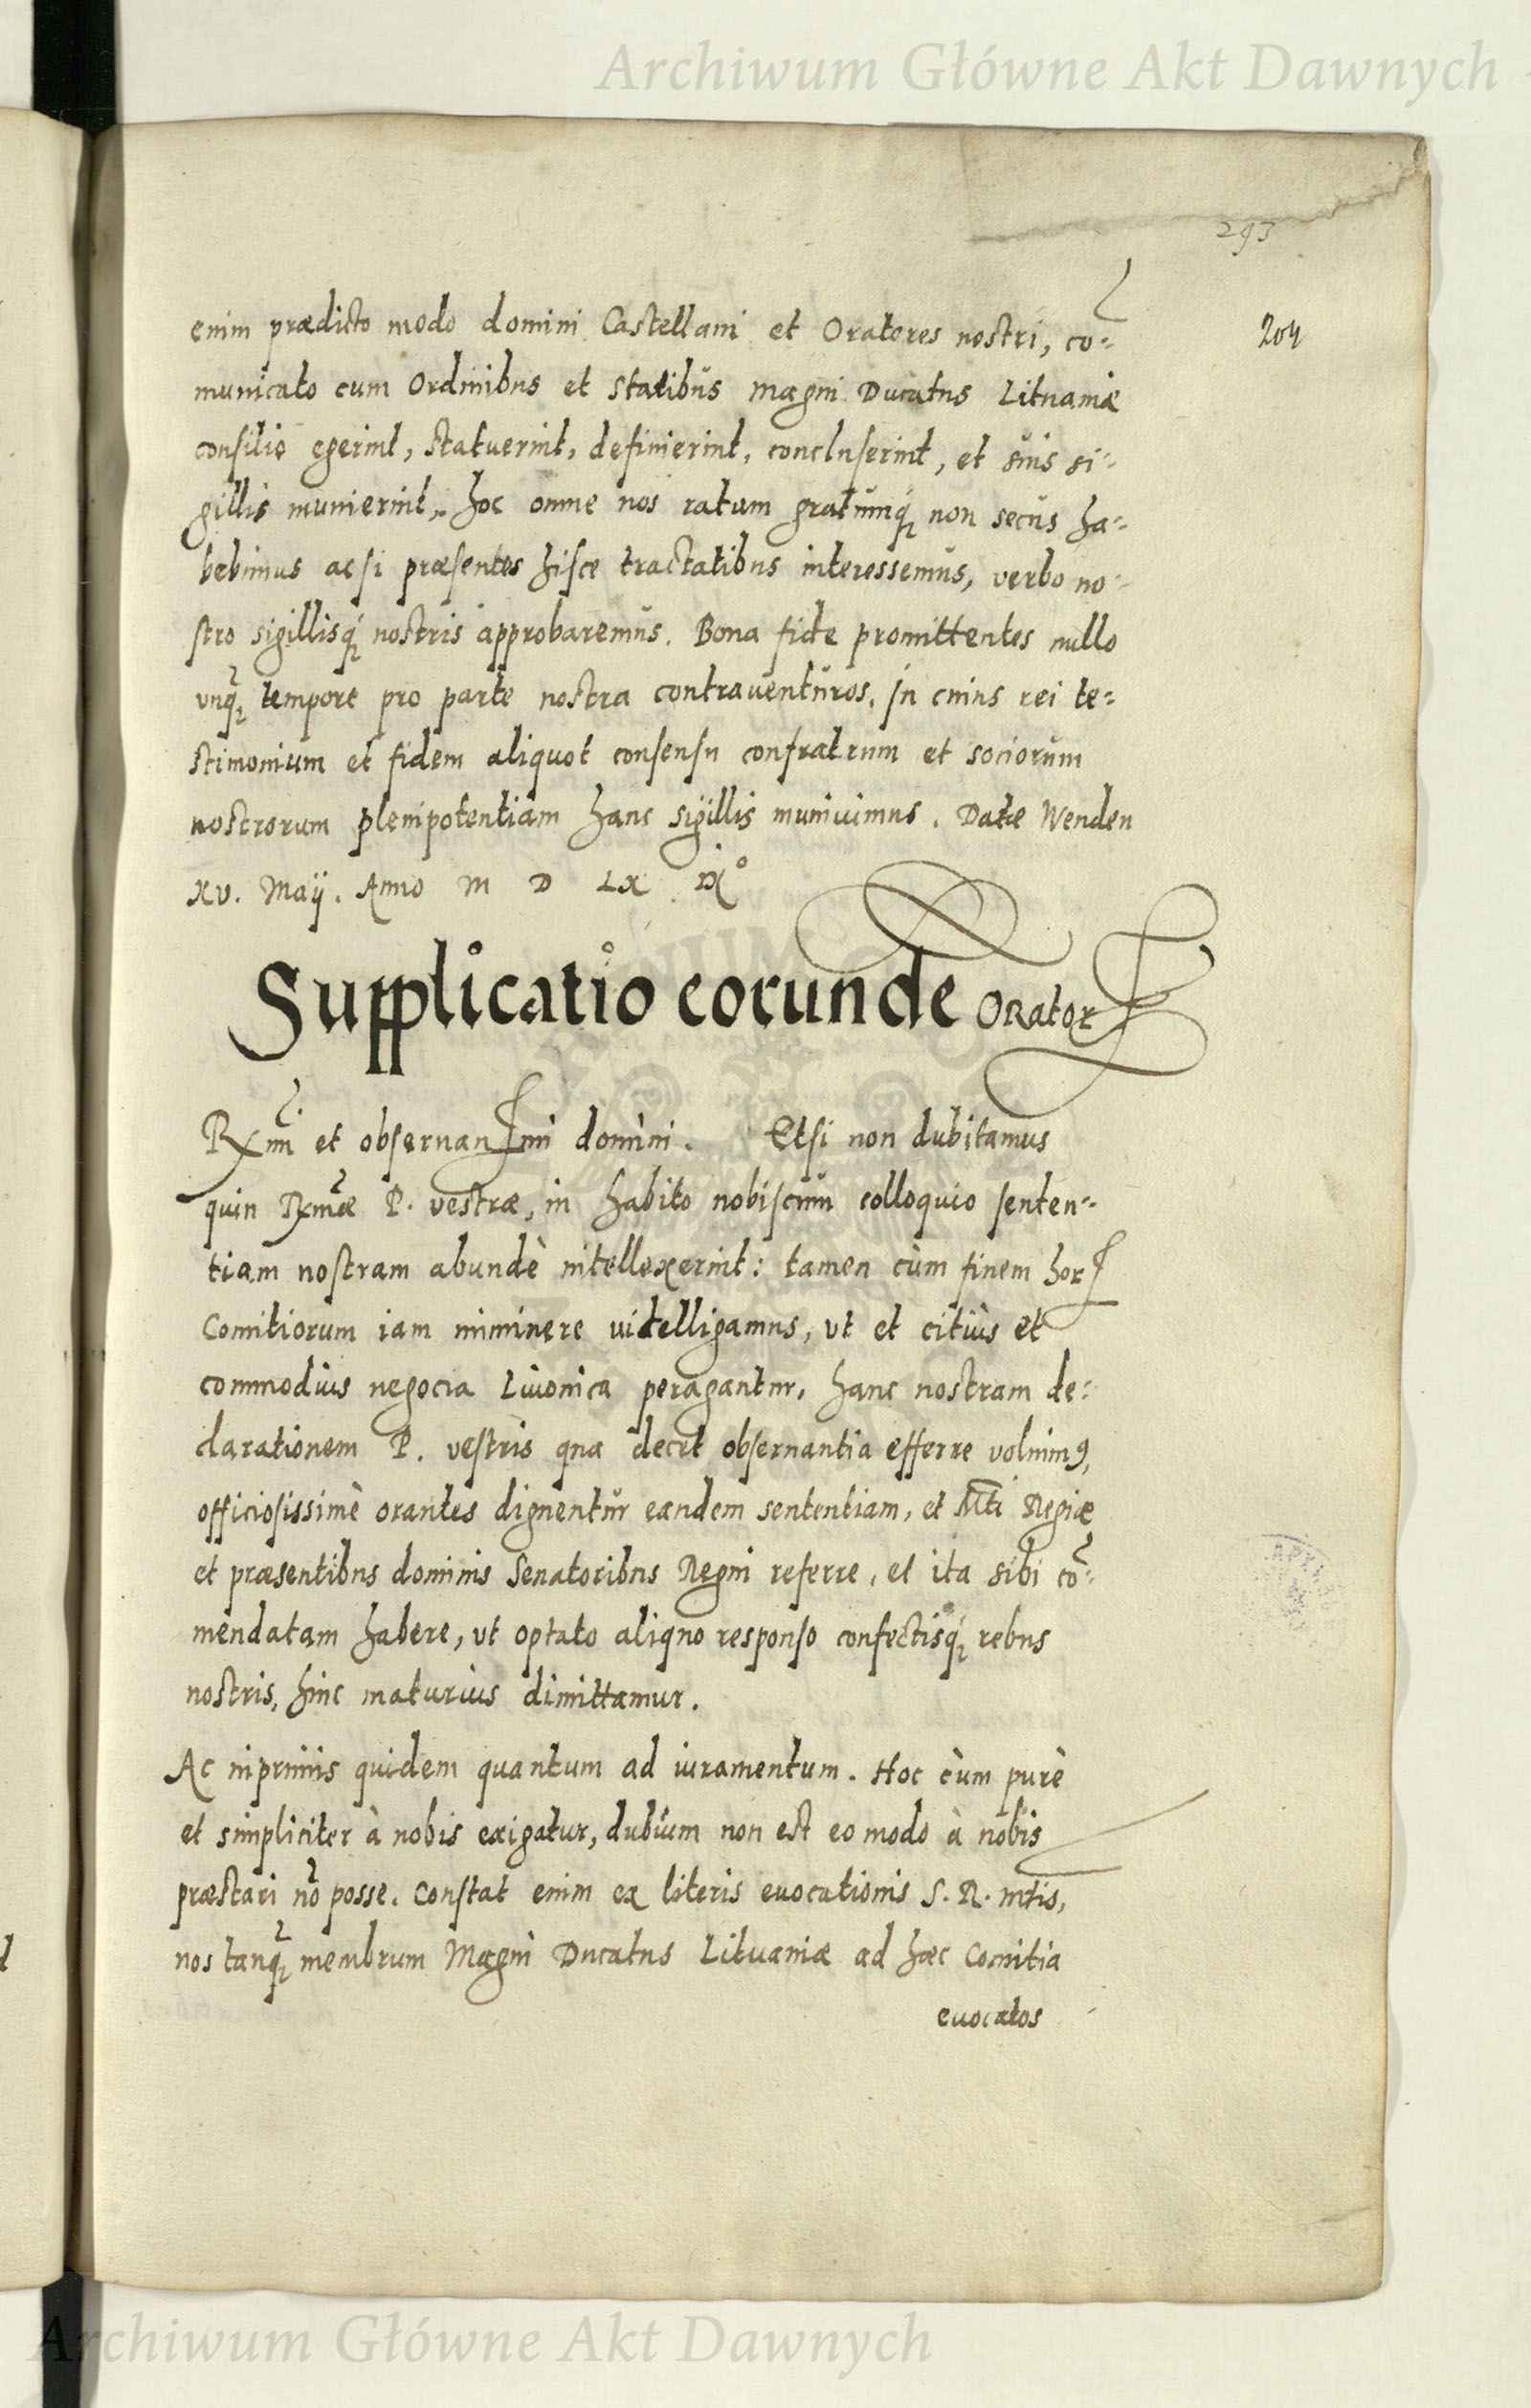 Archiwum Główne Akt Dawnych
293
204
enim prædicto modo domini Castellani et Oratores nostri, co=
municato cum Ordinibus et Statibus Magni Ducatus Lituaniæ
consilio egerint, statuerint, definierint, concluserint, et suis si=
gillis munierint, hoc omne nos ratum gratumq́ꝫ non secus ha=
bebimus ac si præsentes hisce tractatibus interessemus, verbo no=
stro sigillisq́ꝫ nostris approbaremus. Bona fide promittentes nullo
vnq̃ꝫ tempore pro parte nostra contrauenturos. In cuius rei te=
stimonium et fidem aliquot consensu confratrum et sociorum
nostrorum plenipotentiam hanc sigillis muniuimus. Datæ Wenden
XV. Maij. Anno M D LX IX°
Supplicatio eorunde Oratorꝝ
Rx̃mi et obseruanſ̃mi domini. Etsi non dubitamus
quin Rx̃mæ P. vestræ, in habito nobiscum colloquio senten=
tiam nostram abundè intellexerint: tamen cùm finem horꝝ
Comitiorum iam imminere intelligamus, vt et citiùs et
commodiùs negocia Liuonica peragantur, hanc nostram de=
clarationem P. vestris qua decet obseruantia efferre voluimꝰ,
officiosissimè orantes dignentur eandem sententiam, et M̃ti Regiæ
et præsentibus dominis Senatoribus Regni referre, et ita sibi cõ=
mendatam habere, vt optato aliquo responso confectisq́ꝫ rebus
nostris, hinc maturiùs dimittamur.
Ac inprimis quidem quantum ad iuramentum. Hoc cùm purè
et simpliciter à nobis exigatur, dubium non est eo modo à nobis
præstari nõ posse. Constat enim ex literis euocationis S. R. Mtis,
nos tanq̃ꝫ membrum Magni Ducatus Lituaniæ ad hæc Comitia
euocatos
Archiwum Główne Akt Dawnych